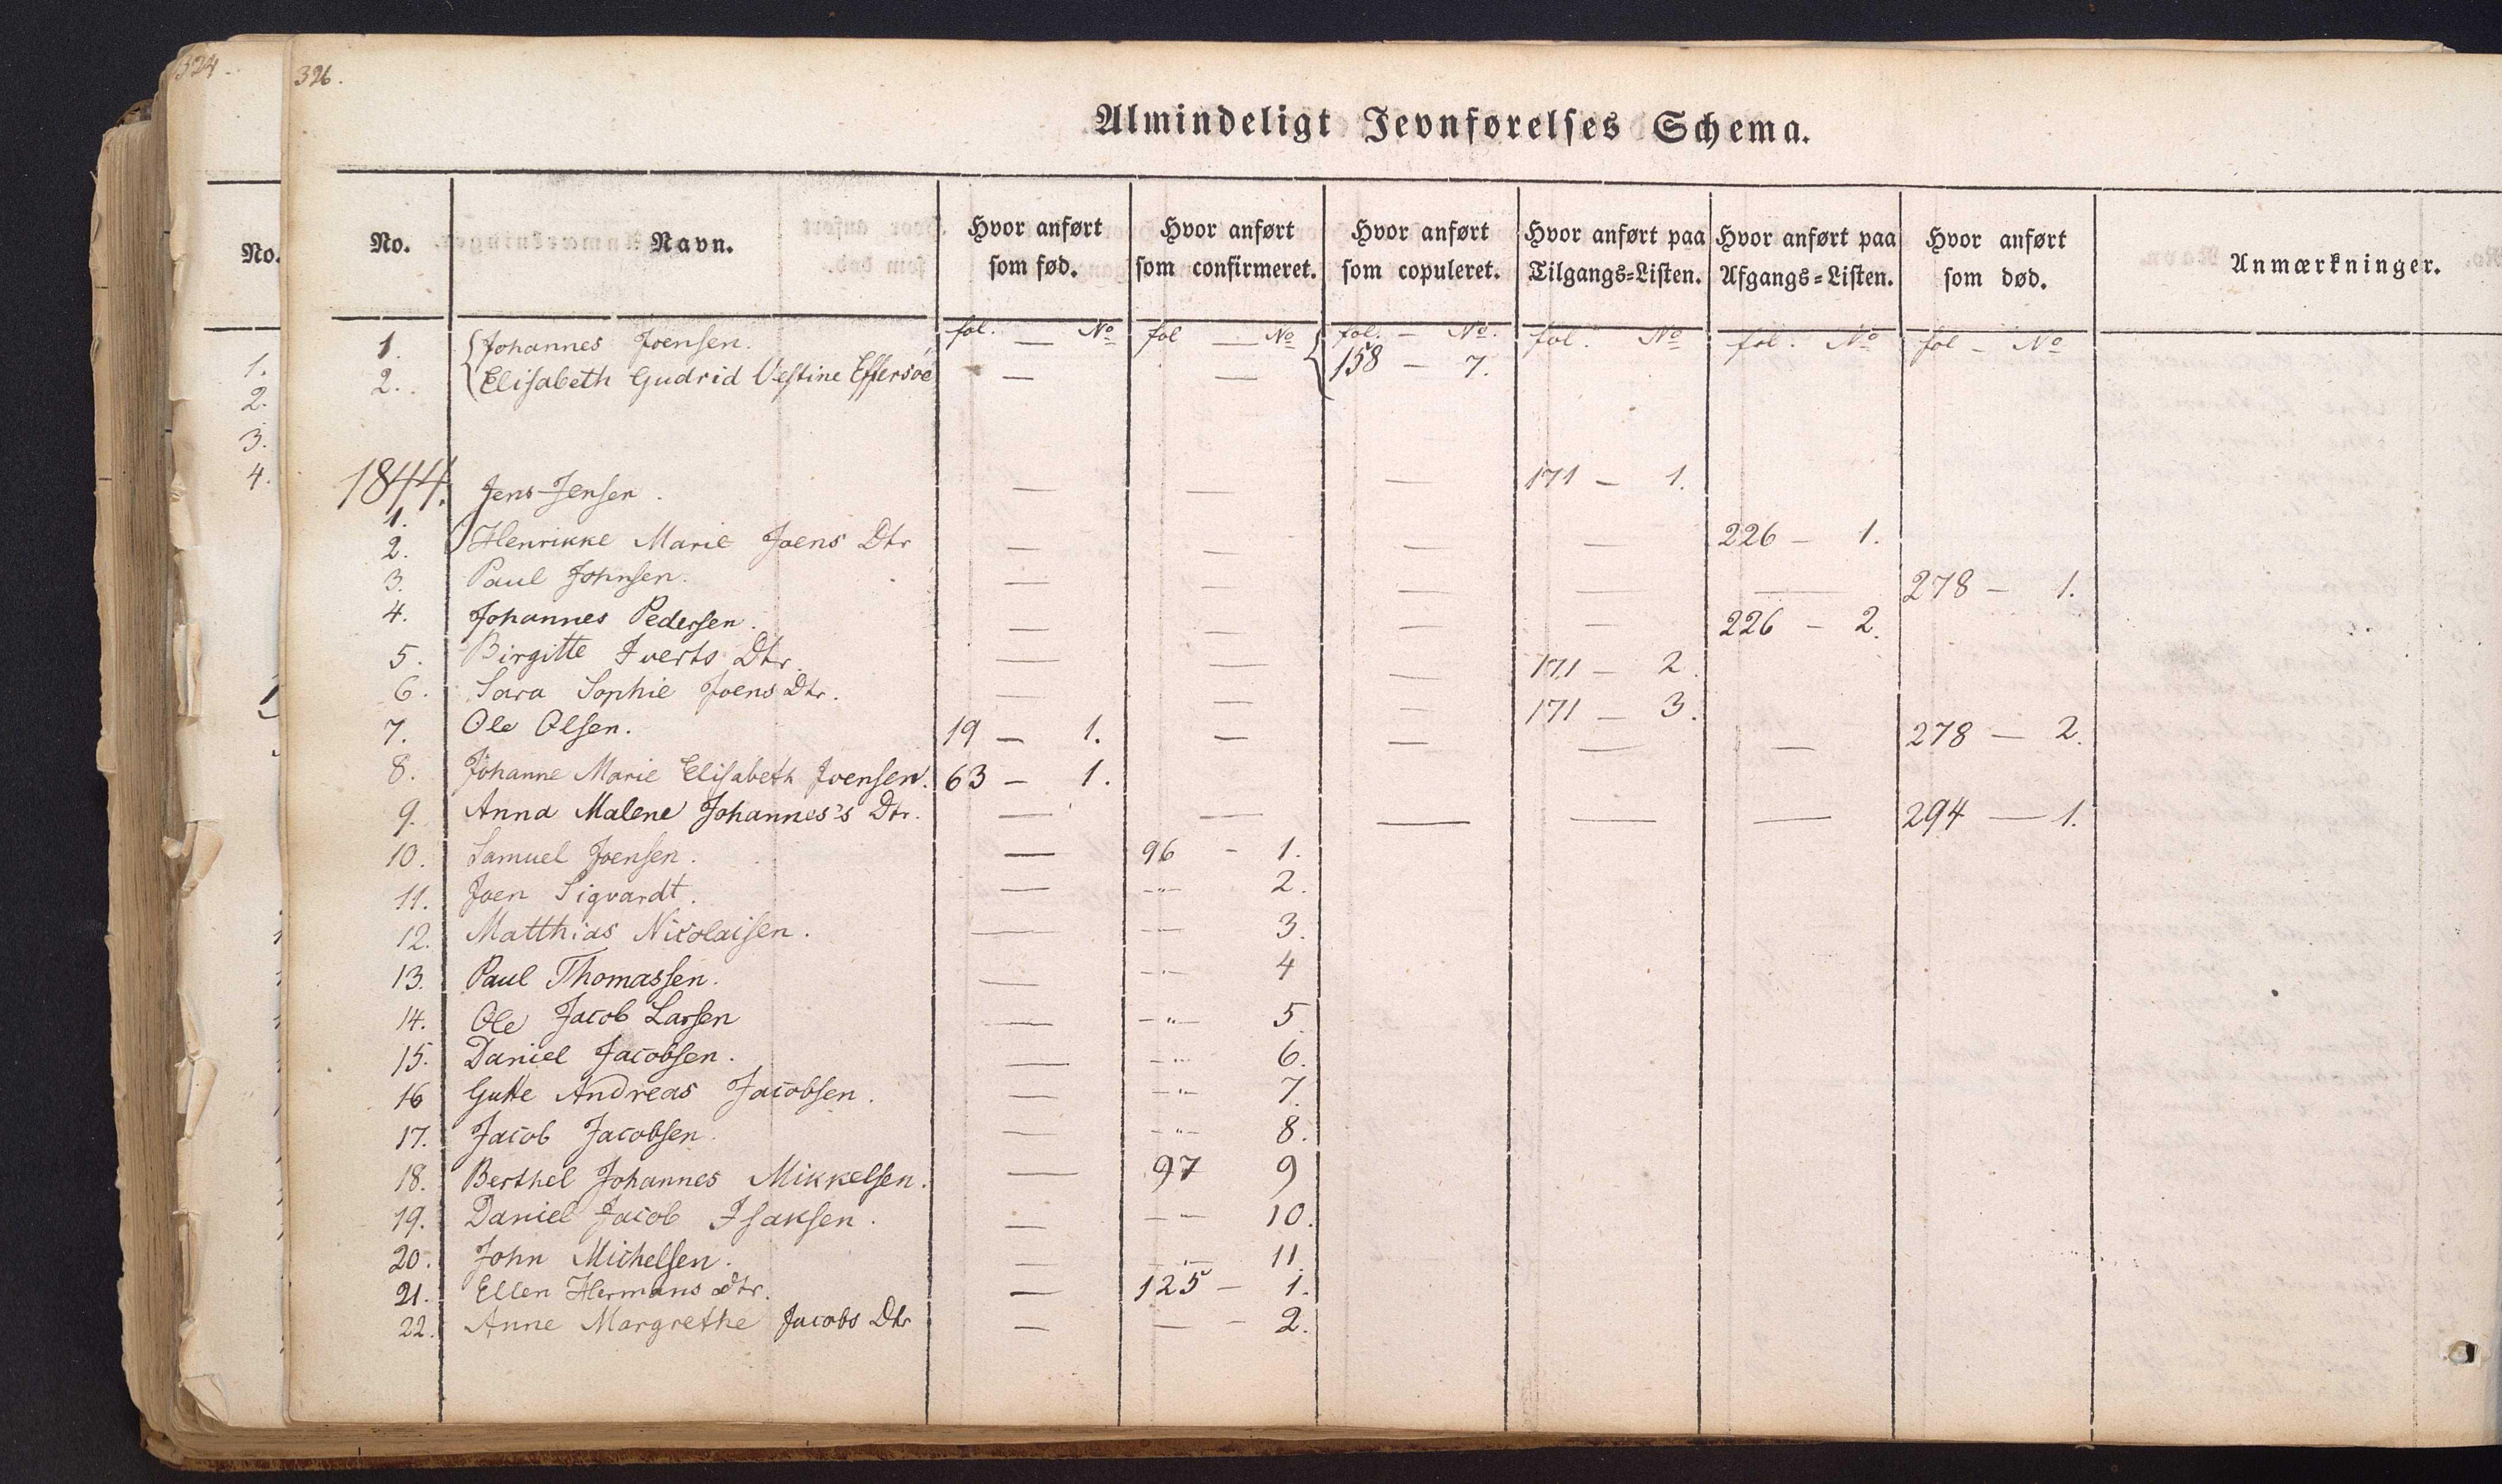 324.
326.
Almindeligt Jevnførelses Schema.
No.
No. Navn. Hvor anført som fød. Hvor anført som confirmeret. Hvor anført som copuleret. Hvor anført paa Tilgangs=Listen. Hvor anført paa Afgangs=Listen. Hvor anført som død. Anmærkninger.
fol. — No fol — No fol. — No. fol. No fol. No fol — No
1. Johannes Joensen.
2. Elisabeth Gudrid Vestine Effersöe — — 158 — 7.
1844.
1. Jens Jensen. — — — 171 — 1.
2. Henrikke Marie Joens Dtr — — — — 226 — 1.
3. Paul Johnsen. — — — — — 278 — 1.
4. Johannes Pedersen. — — — — 226 — 2.
5. Birgitte Iverts Dtr. — — — 171 — 2.
6. Sara Sophie Joens Dtr. — — — 171 — 3.
7. Ole Olsen. 19 — 1. — — — — 278 — 2.
8. Johanne Marie Elisabeth Joensen. 63 — 1.
9. Anna Malene Johannes's Dtr. — — — — — 294 — 1.
10. Samuel Joensen. — 96 - 1.
11. Joen Sigvardt. — -"- 2.
12. Matthias Nicolaisen. — -"- 3.
13. Paul Thomassen. — -"- 4
14. Ole Jacob Larsen — -"- 5.
15. Daniel Jacobsen. — -"- 6.
16 Gutte Andreas Jacobsen. — -"- 7.
17. Jacob Jacobsen. — -"- 8.
18. Berthel Johannes Mikkelsen. — 97 9
19. Daniel Jacob Isaksen. — -"- 10.
20. John Michelsen. — -"- 11.
21. Ellen Hermans Dtr. — 125 — 1.
22. Anne Margrethe Jacobs Dtr — — - 2.
1.
2.
3.
4.